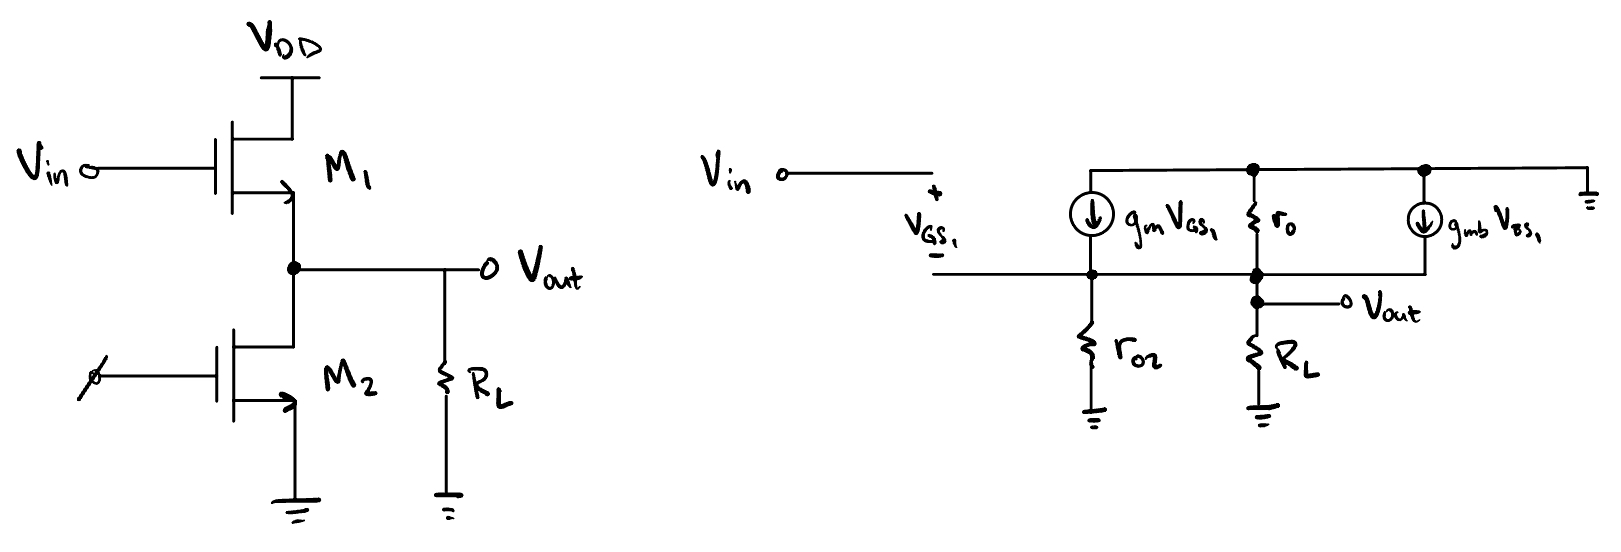 V_DD
V_in
M_1
V_out
M_2
R_L
V_in
+
V_GS_1
−
g_m V_GS_1
r_o
g_mb V_BS_1
V_out
r_o2
R_L